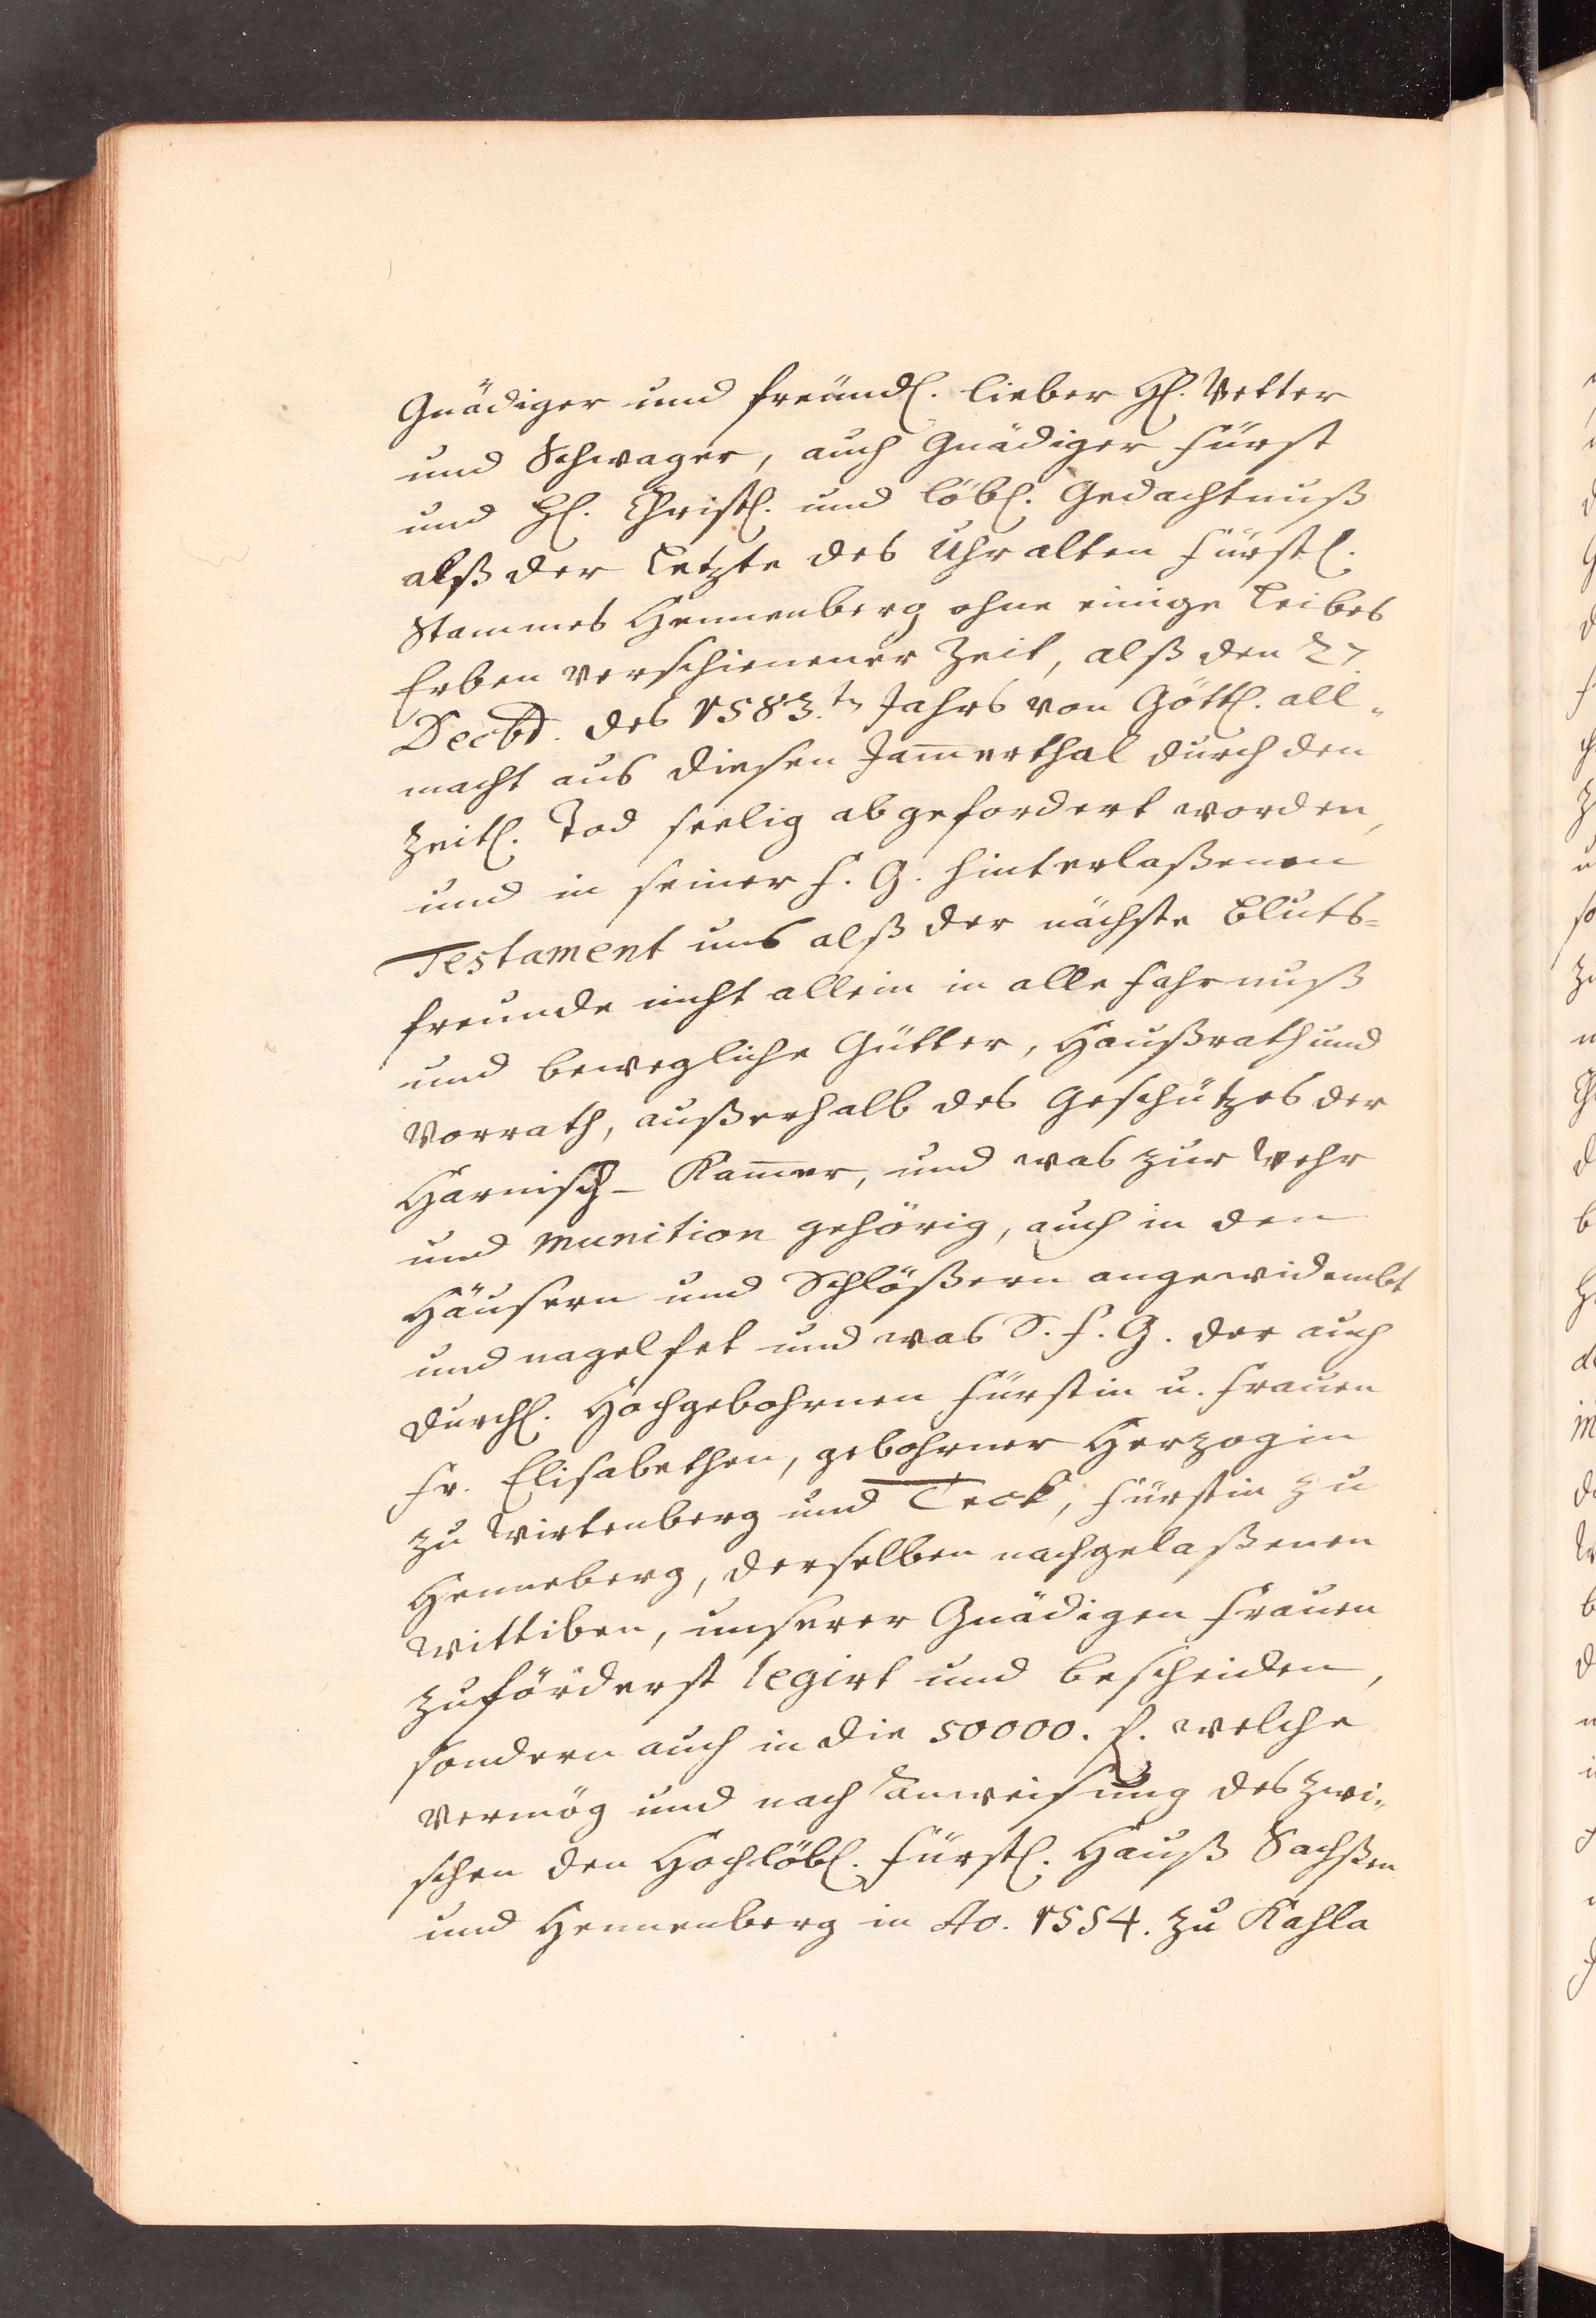 Gnädiger und freündl. lieber Hl. Vetter
und Schwager, auch Gnädiger Fürst
und Hl. Christl. und löbl. Gedachtnuß
alß der Letzte des Uhralten Fürstl.
Stammes Hennenberg ohne einige Leibes
Erben verschienener Zeit, alß den 27.
Decbr. des 1583.tn Jahrs von Göttl. all-
macht aus diesen Jam̅erthal durch den
Zeitl. Tod seelig abgefordert worden,
und in seiner F. G. hinterlaßenen
Testament uns alß der nächste Bluts-
freunde nicht allein in alle Fahrnuß
und bewegliche Gütter, Haußrath und
Vorrath, außerhalb des Geschützes der
Harnisch-Kam̅er, und was zur Wehr
und munition gehörig, auch in den
Häusern und Schlößern angewidembt
und nagelfet und was S. F. G. der auch
Durchl. Hochgebohrnen Fürstin u. Frauen
Fr. Elisabethen, gebohrner Herzogin
zu Wirtenberg und Teck, Fürstin zu
Henneberg, derselben nachgelaßenen
Wittiben, unserer Gnädigen Frauen
zuförderst legirt und bescheiden,
sondern auch in die 50000. f. welche
vermög und nach Anweisung des zwi-
schen den Hochlöbl. Fürstl. Hauß Sachßen
und Hennenberg in Ao. 1554. zu Kahla